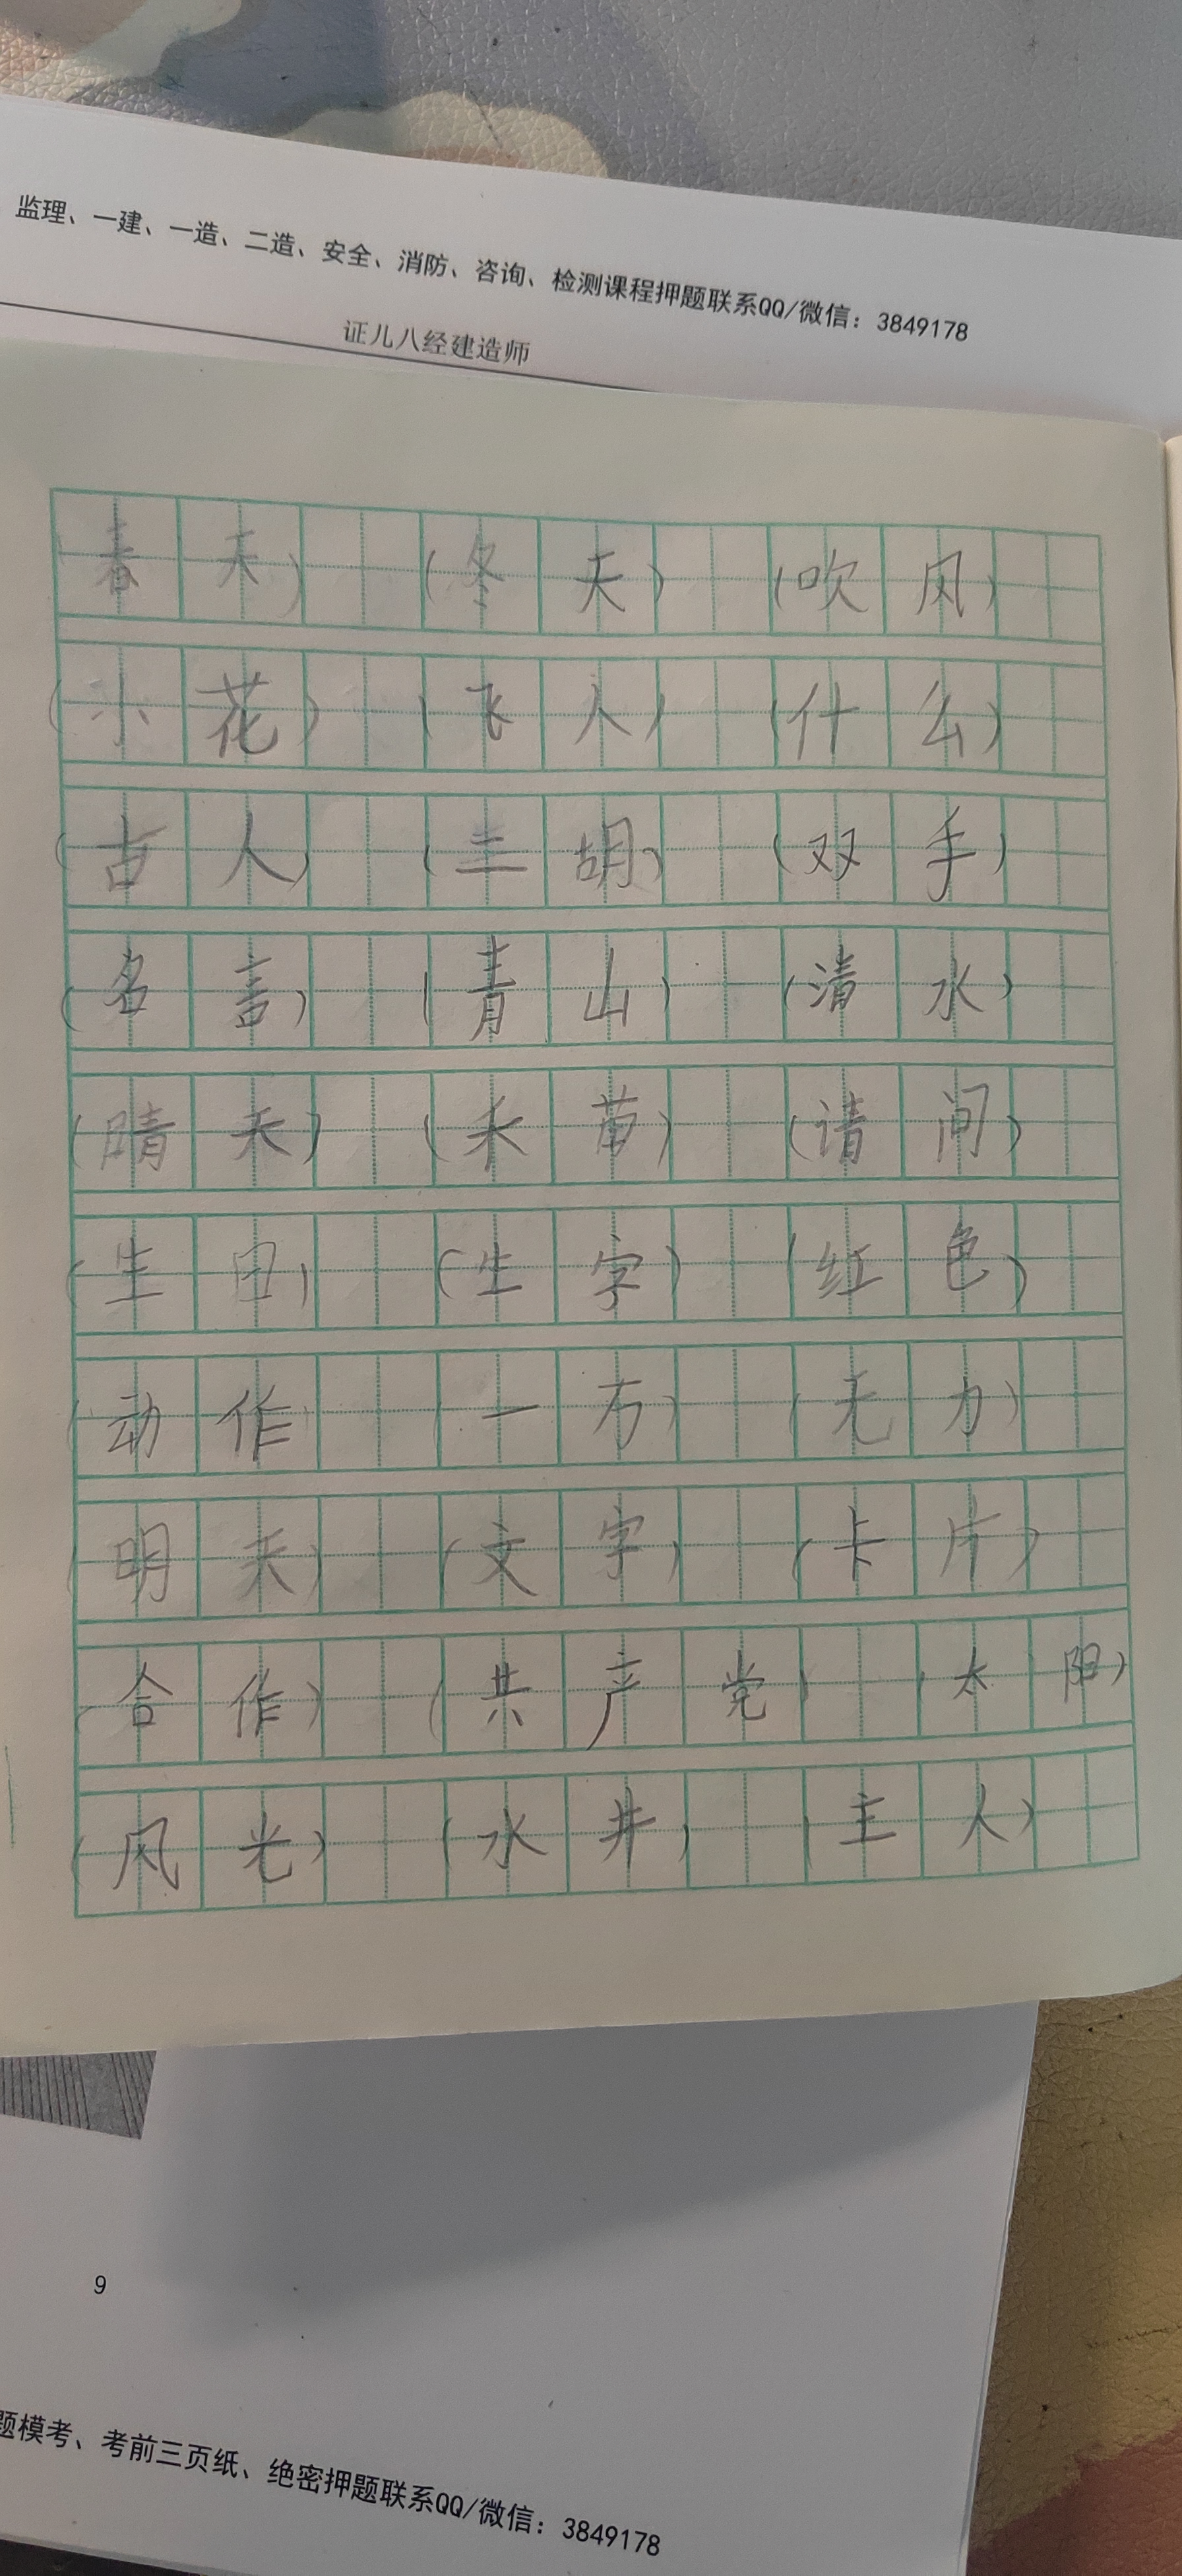 监理、一建、一造、二造、安全、消防、咨询、检测课程押题联系QQ/微信：3849178
证儿八经建造师
春天） （冬天） （吹风）
（小花） （飞人） （什么）
（古人） （二胡） （双手）
（名言） （青山） （清水）
（晴天） （禾苗） （请问）
（生日） （生字） （红色）
（动作 （一方） （无力）
（明天） （文字） （卡片）
（合作） （共产党） （太阳）
（风光） （水井） （主人）
9
题模考、考前三页纸、绝密押题联系QQ/微信：3849178